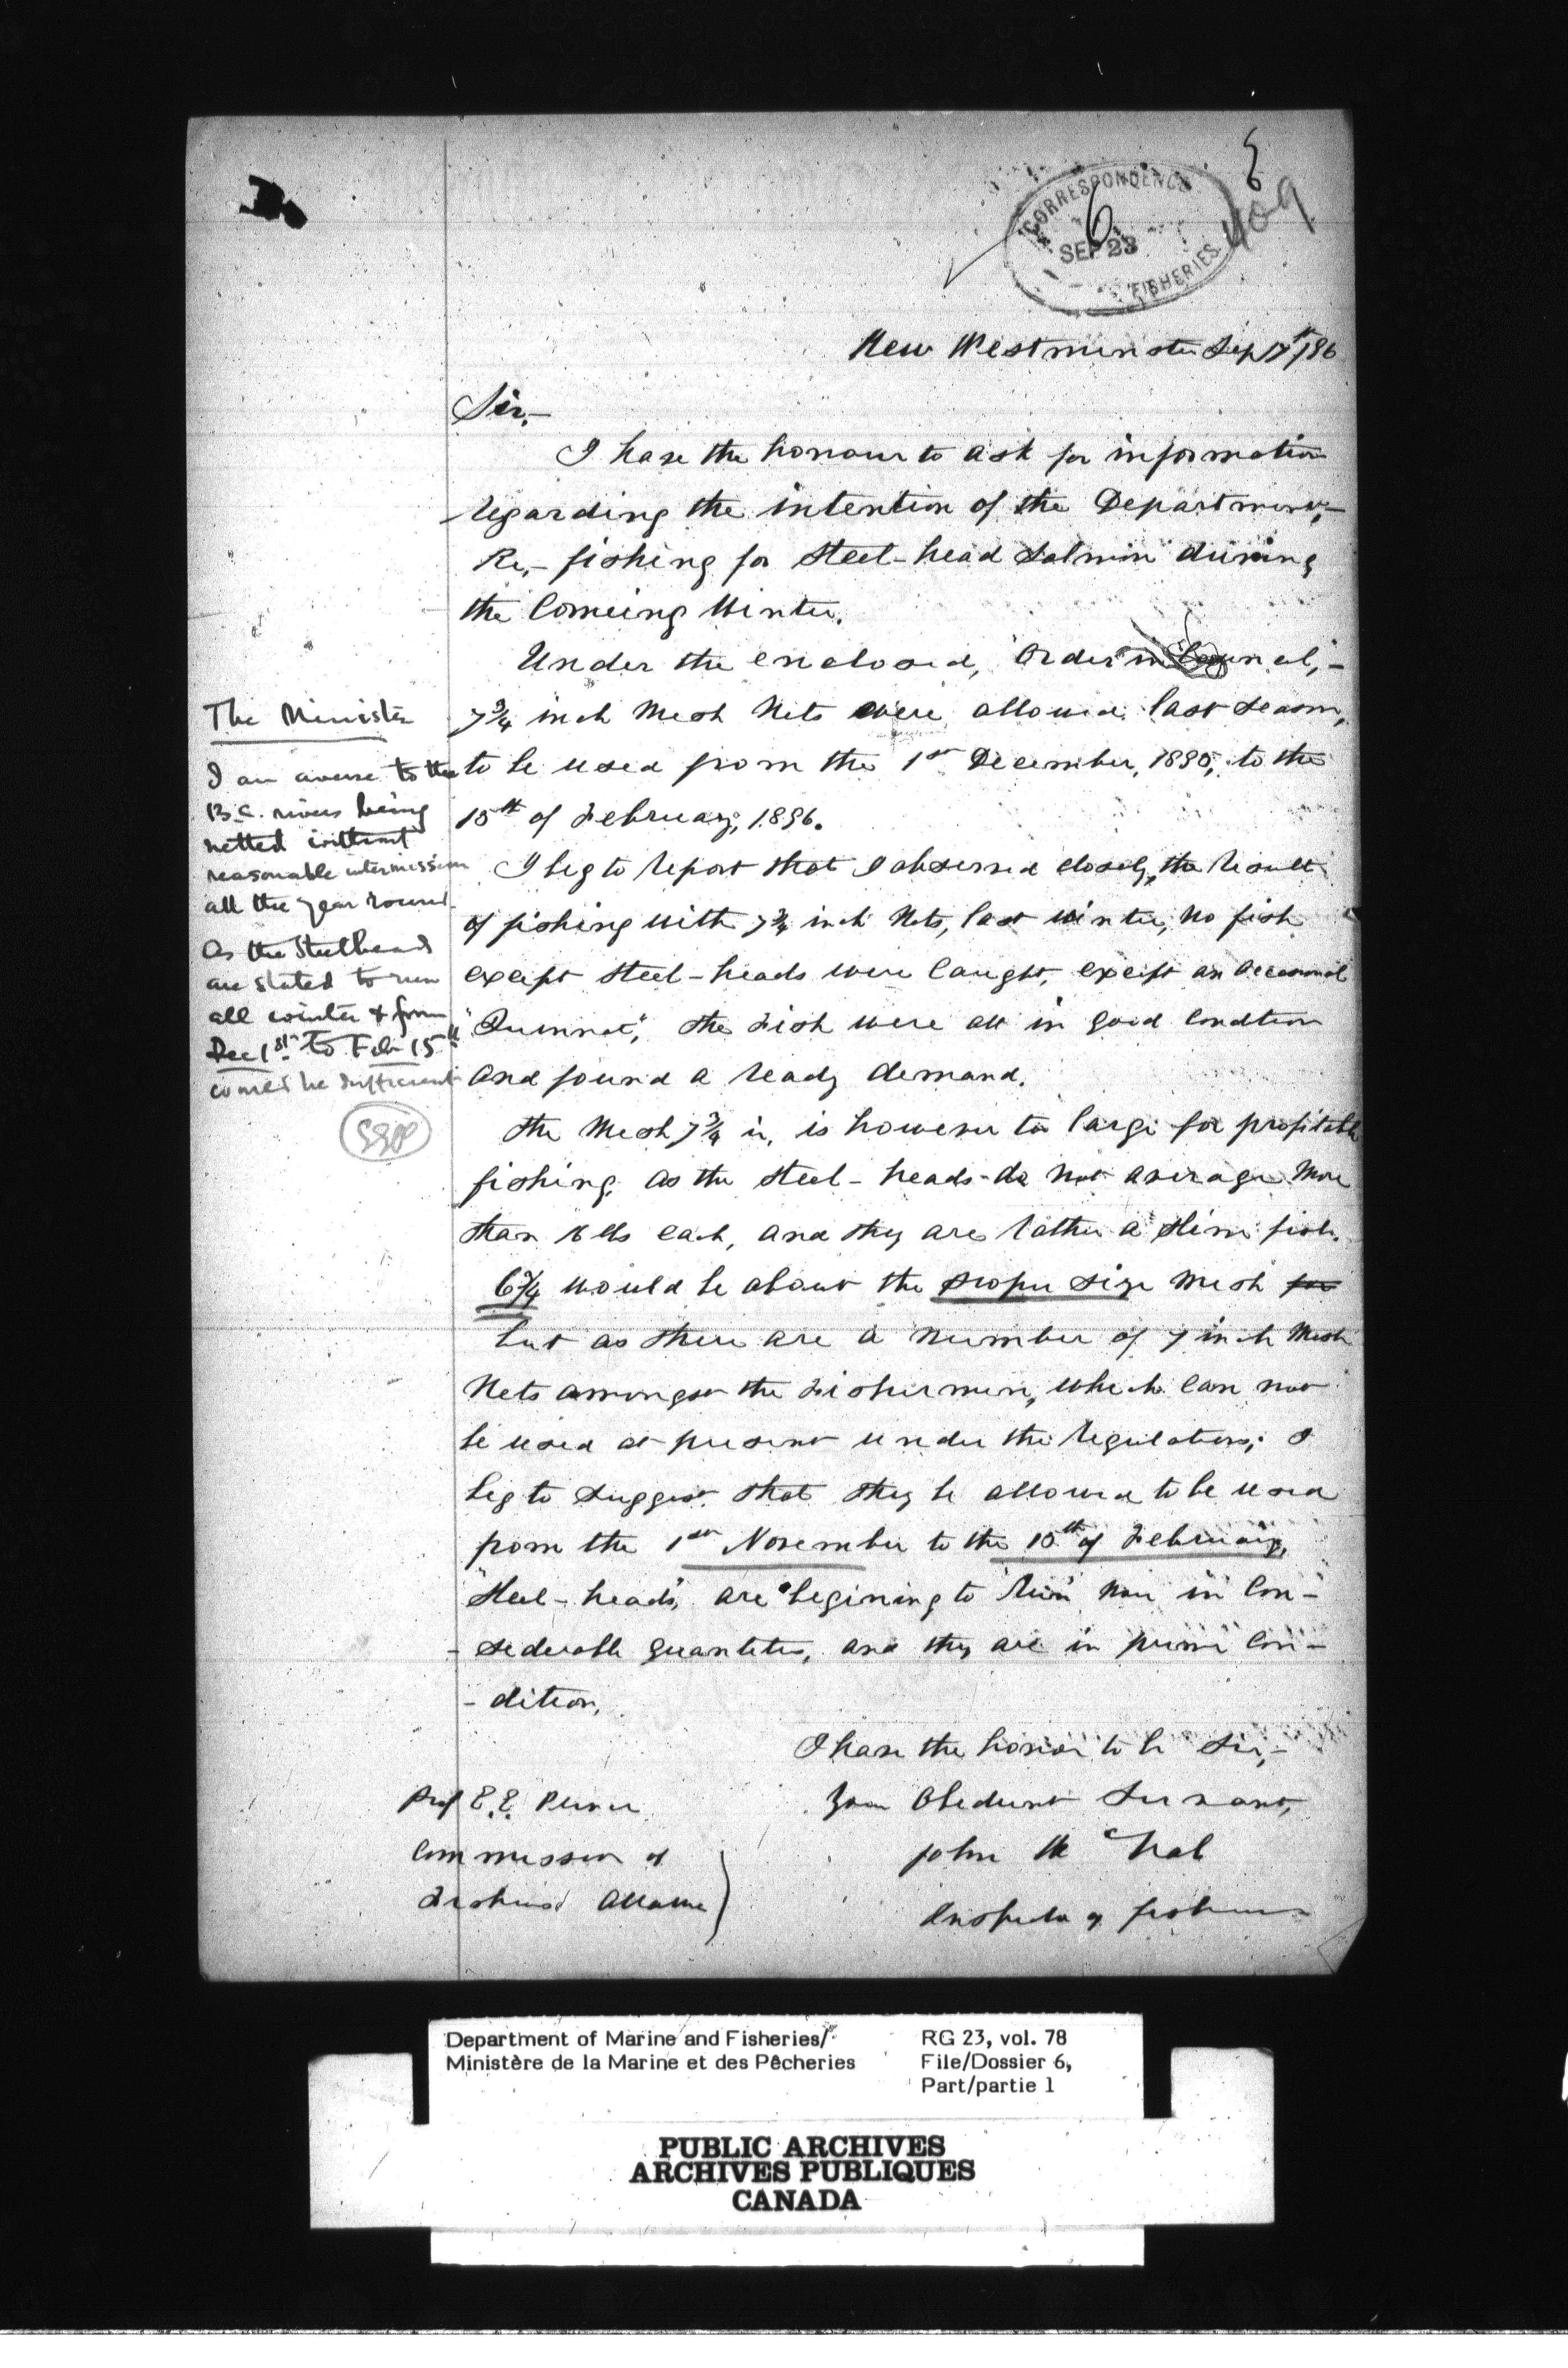 CORRESPONDENCE
6
SEP 23
FISHERIES
409
New Westminster Sep 17th/96
Sir,-
I have the honour to ask for information
regarding the intention of the Department,-
Re,- fishing for Steel-head Salmon during
the Comeing Winter.
Under the enclosed, Order in Council,-
7 3/4 inch Mesh Nets were allowed last season,
to be used from the 1st December, 1895, to the
15th of February, 1896.
I beg to report that I observed closely, the result
of fishing with 7 3/4 inch Nets, last winter, no fish
except steel-heads were caught, except an occasional
"Quinnat", the Fish were all in good condtion
and found a ready demand.
The Mesh 7 3/4 in, is however too large for profitable
fishing, as the Steel-heads do not average more
than 16 lbs each, and they are rather a slim fish.
6 3/4 would be about the proper size mesh for
but as there are a number of 7 inch Mesh
Nets amongst the Fishermen, which can not
be used at present under the regulations; I
beg to suggest that they be allowed to be used
from the 1st November to the 15th of February,
"Steel-heads, are begining to "run" now in Con-
- siderable quantities, and they are in prime Con-
- dition,
I have the honor to be Sir,-
Your Obedient Servant,
John McNab
Inspector of Fisheries
Prof E. E. Prince
Commissioner of
Fisheries Ottawa
The Minister
I am averse to the
B.C. rivers being
netted without
reasonable intermission
all the year round.
As the Steelheads
are stated to run
all winter & from
Dec 1st. to Feb 15th
would be sufficient
EEP
Department of Marine and Fisheries/
Ministère de la Marine et des Pêcheries
RG 23, vol. 78
File/Dossier 6,
Part/partie 1
PUBLIC ARCHIVES
ARCHIVES PUBLIQUES
CANADA